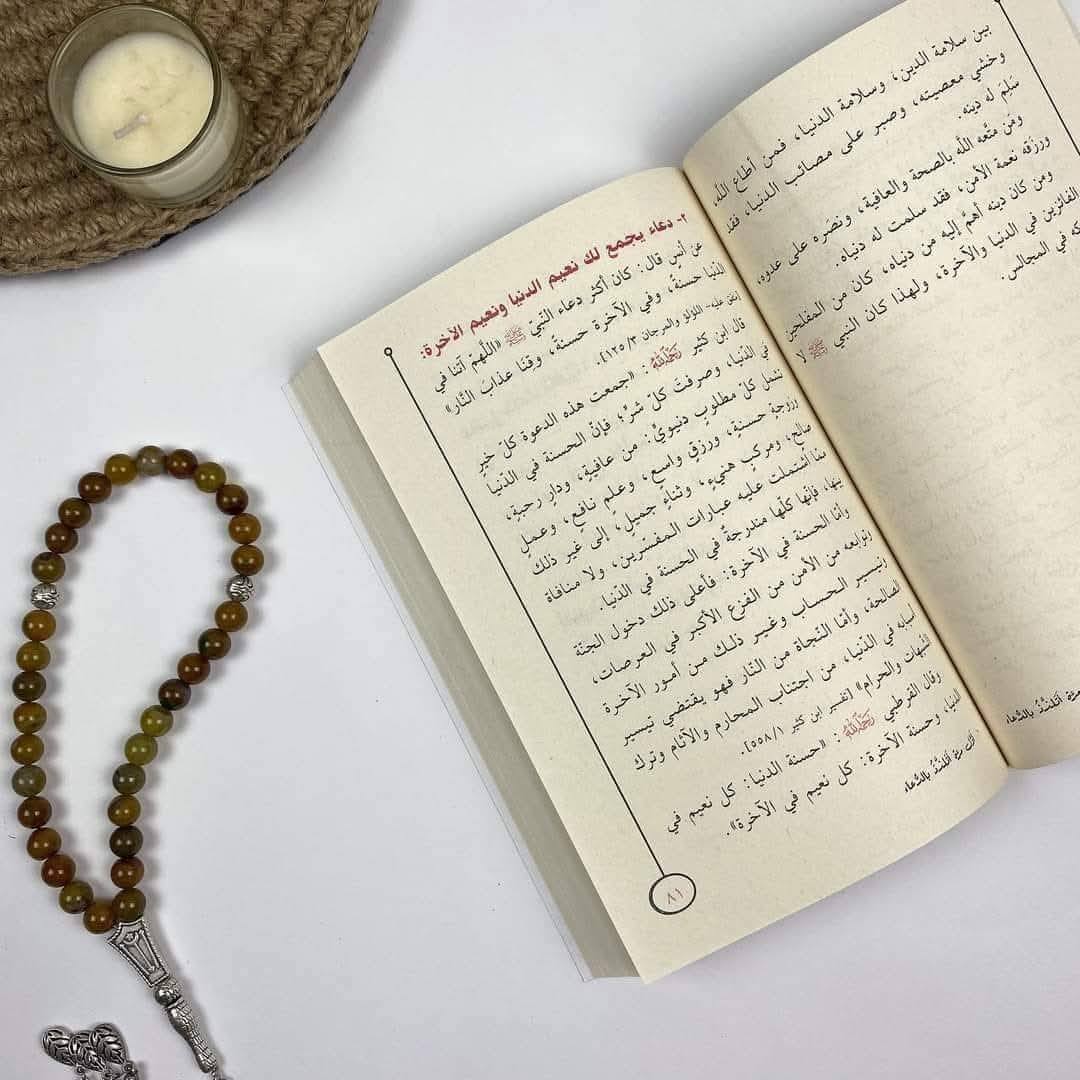 بين سلامة الدين، وسلامة الدنيا، فمن أطاع الله
وخشي معصيته، وصبر على مصائب الدنيا، فقد
سَلِمَ له دينه.
ومَن متَّعه الله بالصحة والعافية، ونصَره على عدوه،
ورزقه نعمة الأمن، فقد سلمت له دنياه.
ومن كان دينه أهمَّ إليه من دنياه، كان من المفلحين
الفائزين في الدنيا والآخرة، ولهذا كان النبي ﷺ لا
في المجالس.
بالدُّعاء
٢- دعاء يجمع لك نعيم الدنيا ونعيم الآخرة:
عن أنسٍ قال: كان أكثر دعاء النّبيّ ﷺ «اللَّهمّ آتنا في
الدّنيا حسنةً، وفي الآخرة حسنةً، وقنا عذاب النّار»
[متفق عليه- اللؤلؤ والمرجان ٣/ ١٢٥].
قال ابن كثير رَحِمَهُ اللَّهُ: «جمعت هذه الدعوة كلّ خيرٍ
في الدّنيا، وصرفت كلّ شرٍّ؛ فإنّ الحسنة في الدّنيا
تشمل كلّ مطلوبٍ دنيويٍّ: من عافيةٍ، ودارٍ رحبةٍ،
وزوجةٍ حسنةٍ، ورزقٍ واسعٍ، وعلمٍ نافعٍ، وعملٍ
صالحٍ، ومركبٍ هنيءٍ، وثناءٍ جميلٍ، إلى غير ذلك
ممّا اشتملت عليه عبارات المفسّرين، ولا منافاة
بينها، فإنها كلّها مندرجةٌ في الحسنة في الدّنيا.
وأمّا الحسنة في الآخرة: فأعلى ذلك دخول الجنّة
وتوابعه من الأمن من الفزع الأكبر في العرصات،
وتيسير الحساب وغير ذلك من أمور الآخرة
الصالحة، وأمّا النّجاة من النّار فهو يقتضي تيسير
أسبابه في الدّنيا، من اجتناب المحارم والآثام وترك
الشّبهات والحرام» [تفسير ابن كثير ١/ ٥٥٨].
وقال القرطبي رَحِمَهُ اللَّهُ: «حسنة الدنيا: كل نعيم في
الدنيا، وحسنة الآخرة: كل نعيم في الآخرة».
بالدُّعاء
٨١